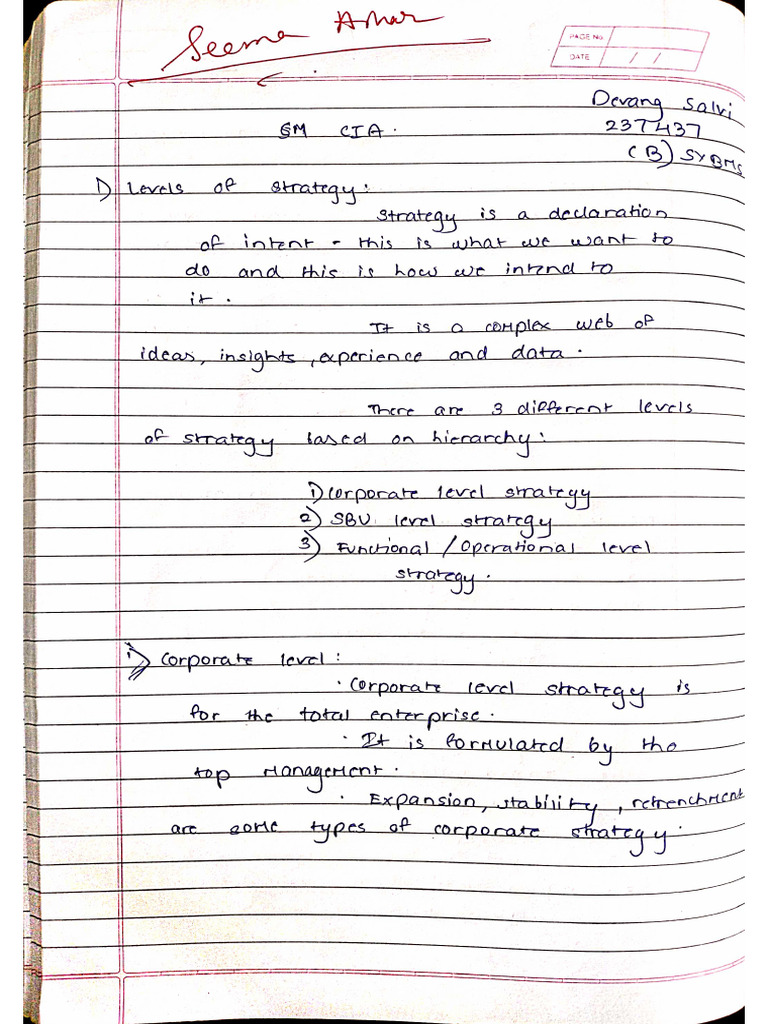 Seema
PAGE No
DATE / /
Devang Salvi
SM CIA.
237437
(B) SYBMS
1) Levels of strategy:
Strategy is a declaration
of intent - this is what we want to
do and this is how we intend to
it.
It is a complex web of
ideas, insights, experience and data.
There are 3 different levels
of strategy based on hierarchy:
1) Corporate level strategy
2) SBU level strategy
3) Functional / Operational level
strategy.
i) Corporate level:
· Corporate level strategy is
for the total enterprise.
· It is formulated by the
top management.
· Expansion, stability, retrenchment
are some types of corporate strategy.